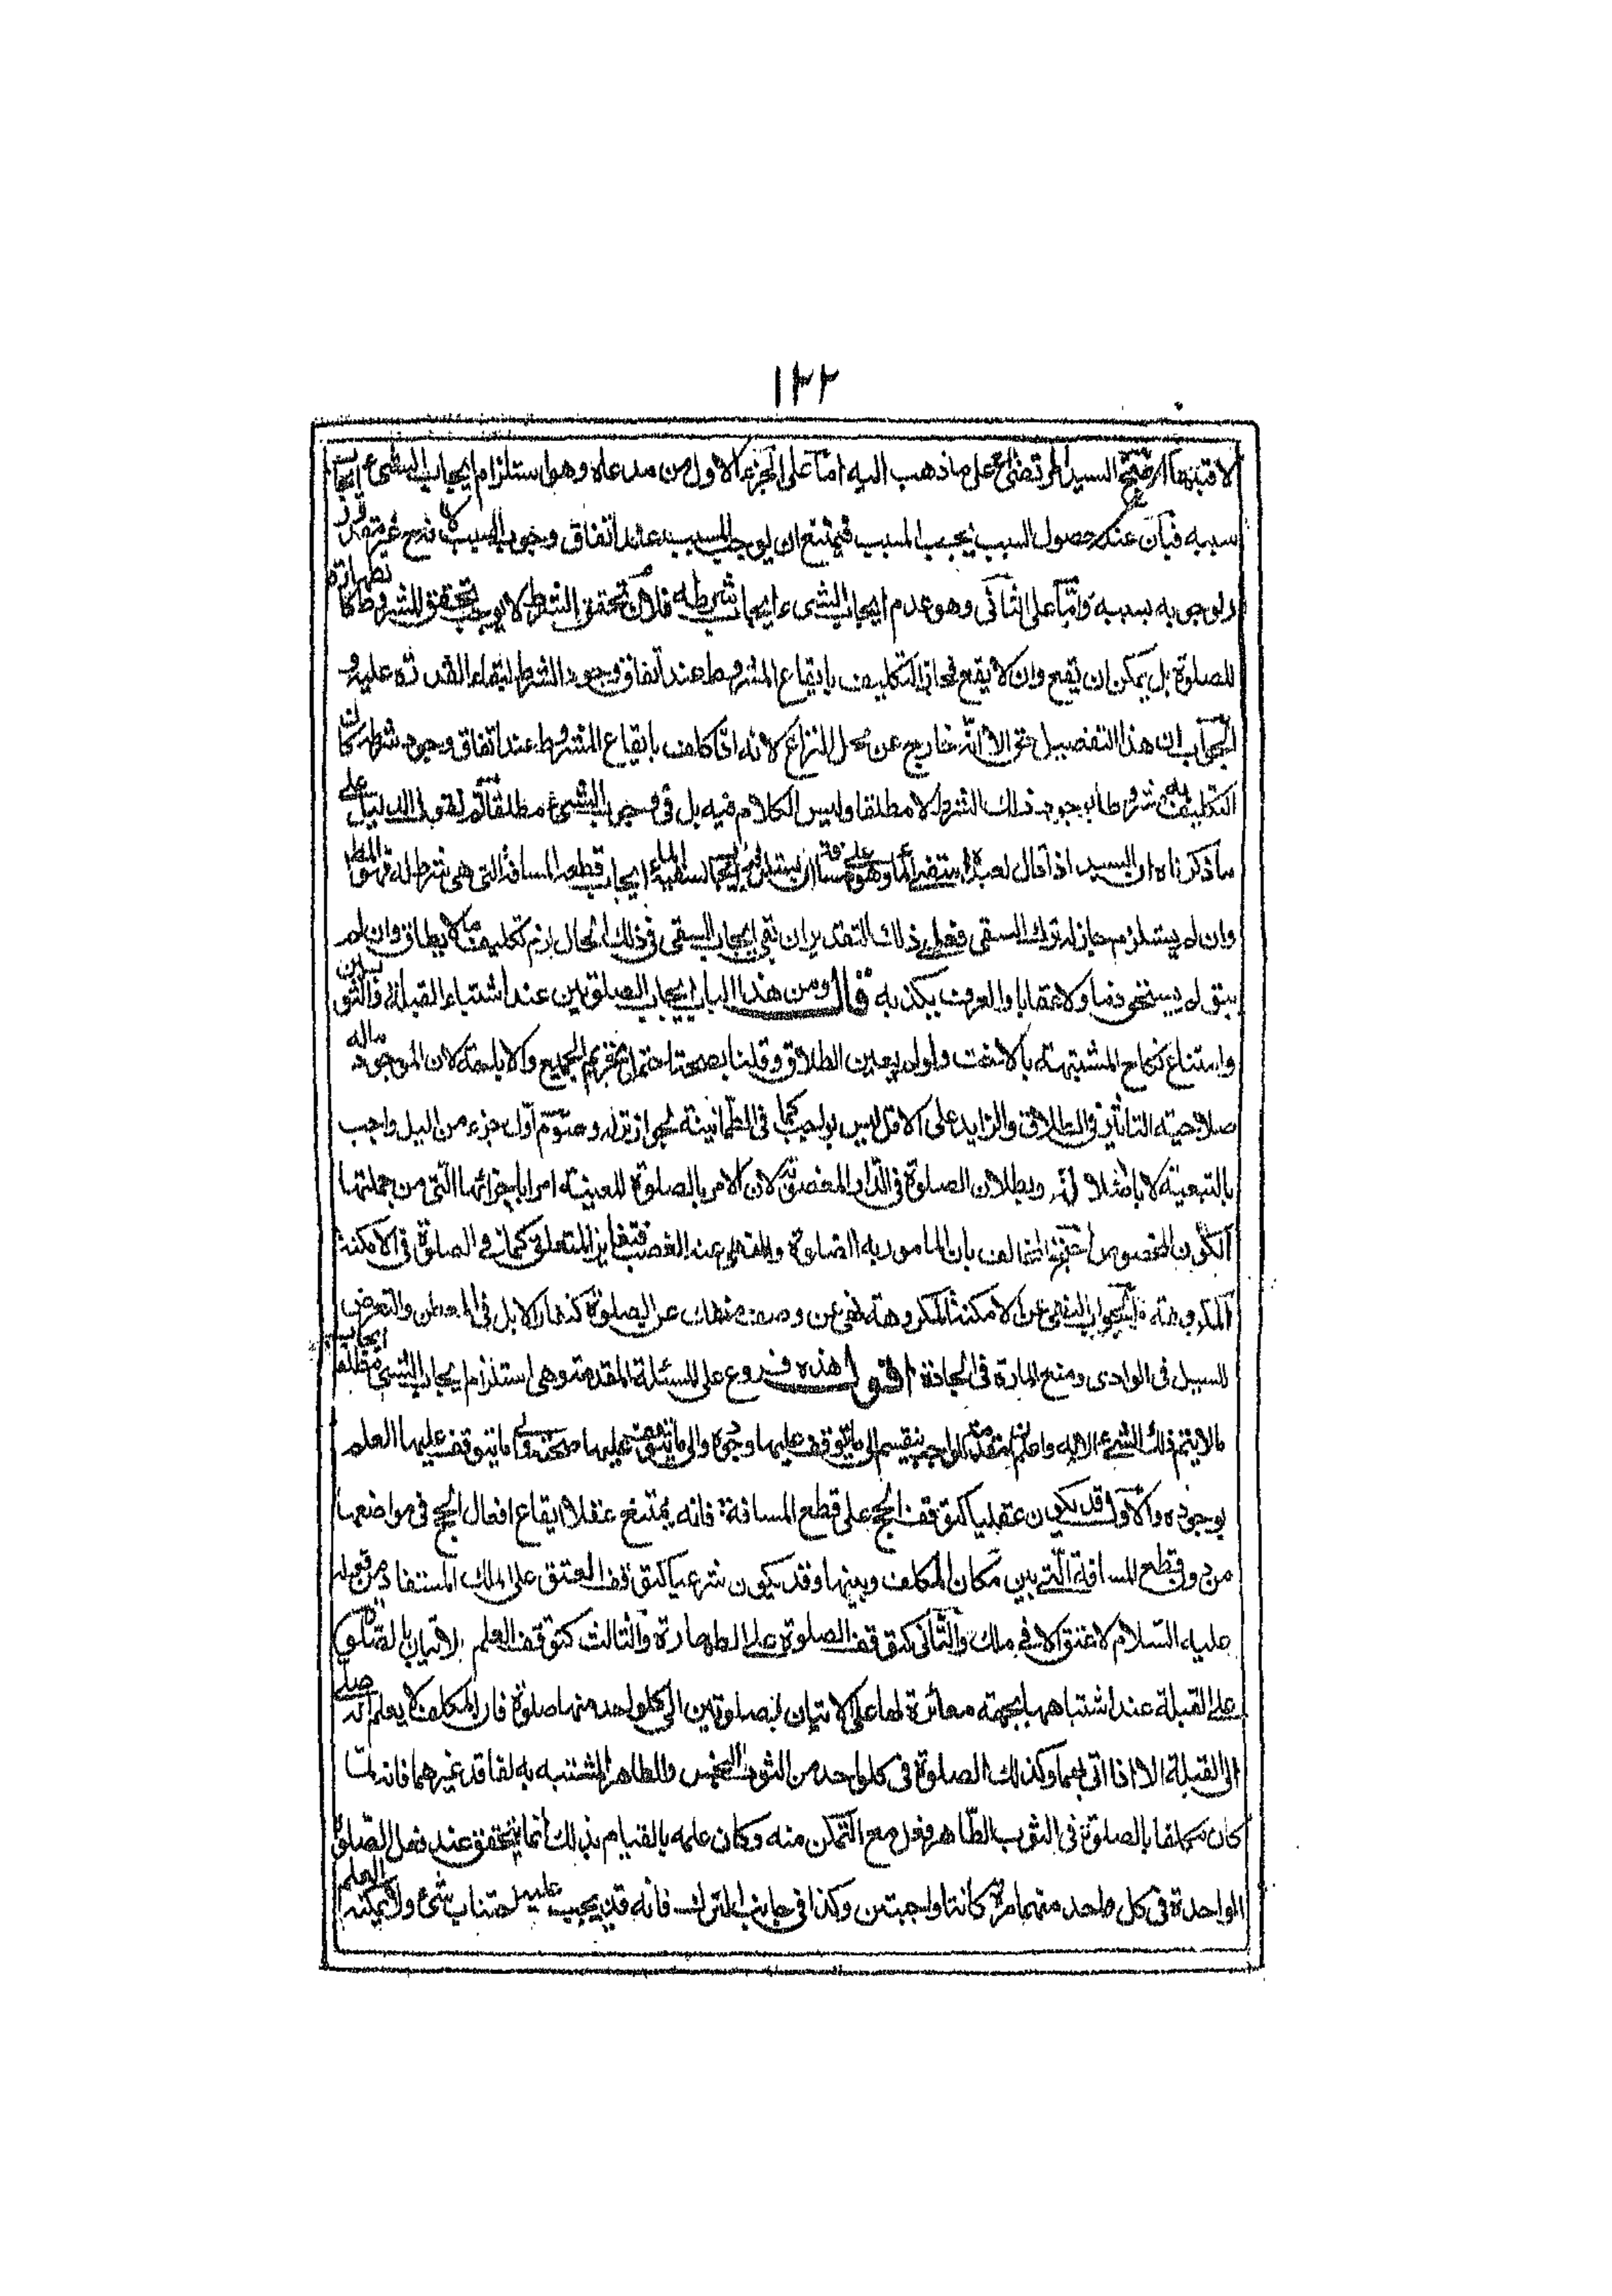 ١٢٢
السيد المرتضى على ما ذهب اليه اما على الجزء الاول من مدعاه وهو استلزام ايجاب الشئ ايجاب
سببه فبان عند حصول السبب يجب المسبب فيمتنع ان يوجب المسبب عند اتفاق وجود السبب
لوجوبه بسببه واما على الثانى وهو عدم ايجاب الشئ ايجاب شرطه فلان تحقق الشرط لا يوجب تحقق المشروط كالطهارة
للصلوة بل يمكن ان يقع وان لا يقع فجاز التكليف بايقاع المشروط عند اتفاق وجود الشرط لبقاء القدرة عليه و
الجواب ان هذا التفصيل خارج عن محل النزاع لانه اذا كلف بايقاع المشروط عند اتفاق وجود شرطه كان
التكليف به مشروطا بوجود ذلك الشرط لا مطلقا وليس الكلام فيه بل فى وجوب الشئ مطلقا ثم نقول الدليل على
ما ذكرناه ان السيد اذا قال لعبده ايجاب قطع المسافة التى هى شرط له
وان لم يستلزم جاز له ترك السقى فعلى ذلك التقدير ان بقى ايجاب السقى فى ذلك الحال لزم تكليف ما لا يطاق وان لم
يبق لم يستحق ذما ولا عقابا والعرف يكذبه قال ومن هذا الباب ايجاب الصلوتين عند اشتباه القبلة والثوبين
وامتناع نكاح المشتبهة بالاخت ولو لم يعين الطلاق وقلنا بصحته احتمل تحريم الجميع والاباحة لان الموجود ماله
صلاحية التاثير فى الطلاق والزايد على الاقل ليس بواجب كما فى الطمانينة لجواز تركه وصوم اول جزء من الليل واجب
بالتبعية لا بالاصالة وبطلان الصلوة فى الدار المغصوبة لان الامر بالصلوة المعينة امر باجزائها التى من جملتها
الكون المغصوب احتج المخالف بان المامور به الصلوة والمنهى عنه الغصب فتغاير المتعلق كما فى الصلوة فى الامكنة
المكروهة والجواب النهى عن الامكنة المكروهة نهى عن وصف منفك عن الصلوة كنفار الابل فى المعطن والتعرض
للسيل فى الوادى ومنع المارة فى الجادة اقول هذه فروع على المسئلة المتقدمة وهى استلزام ايجاب الشئ مطلقا ايجاب
ما لا يتم ذلك الشئ الا به واعلم ان مقدمة الواجب ينقسم الى ما يتوقف عليها وجوده والى ما يتوقف عليها صحته والى ما يتوقف عليها العلم
بوجوده والاول قد يكون عقليا كتوقف الحج على قطع المسافة فانه يمتنع عقلا ايقاع افعال الحج فى مواضعها
من دون قطع المسافة التى بين مكان المكلف وبينها وقد يكون شرعيا كتوقف العتق على الملك المستفاد من قوله
عليه السلام لا عتق الا فى ملك والثانى كتوقف الصلوة على الطهارة والثالث كتوقف العلم بالاتيان بالصلوة
على القبلة عند اشتباهها بجهة مغائرة لها على الاتيان بصلوتين الى كل واحد منها صلوة فان المكلف لا يعلم انه صلى
الى القبلة الا اذا اتى بهما وكذلك الصلوة فى كل واحد من الثوب النجس والطاهر المشتبه به لفاقد غيرهما فانه لما
كان مكلفا بالصلوة فى الثوب الطاهر مع التمكن منه وكان علمه بالقيام بذلك انما يتحقق عند فعل الصلوة
الواحدة فى كل واحد منهما مرة كانتا واجبتين وكذا فى جانب الترك فانه قد يجب عليه اجتناب شئ ولا يمكنه العلم